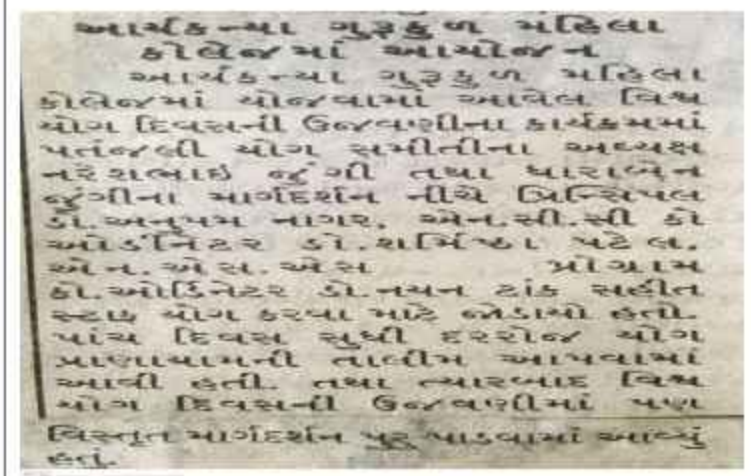 આર્યકન્યા ગુરૂકુળ મહિલા
કોલેજમાં આયોજન
આર્યકન્યા ગુરૂકુળ મહિલા
કોલેજમાં યોજવામાં આવેલ વિશ્વ
યોગ દિવસની ઉજવણીના કાર્યક્રમમાં
પતંજલી યોગ સમીતીના અધ્યક્ષ
નરેશભાઇ જુંગી તથા ધારાબેન
જુંગીના માર્ગદર્શન નીચે પ્રિન્સિપલ
ડો.અનુપમ નાગર, એન.સી.સી કો
ઓર્ડીનેટર ડો.શર્મિષ્ઠા પટેલ,
એન.એસ.એસ પ્રોગ્રામ
કો.ઓર્ડિનેટર ડો.નયન ટાંક સહીત
સ્ટાફ યોગ કરવા માટે જોડાયો હતો.
પાંચ દિવસ સુધી દરરોજ યોગ
પ્રાણાયામની તાલીમ આપવામાં
આવી હતી. તથા ત્યારબાદ વિશ્વ
યોગ દિવસની ઉજવણીમાં પણ
વિસ્તૃત માર્ગદર્શન પુરૂ પાડવામાં આવ્યું
હતું.